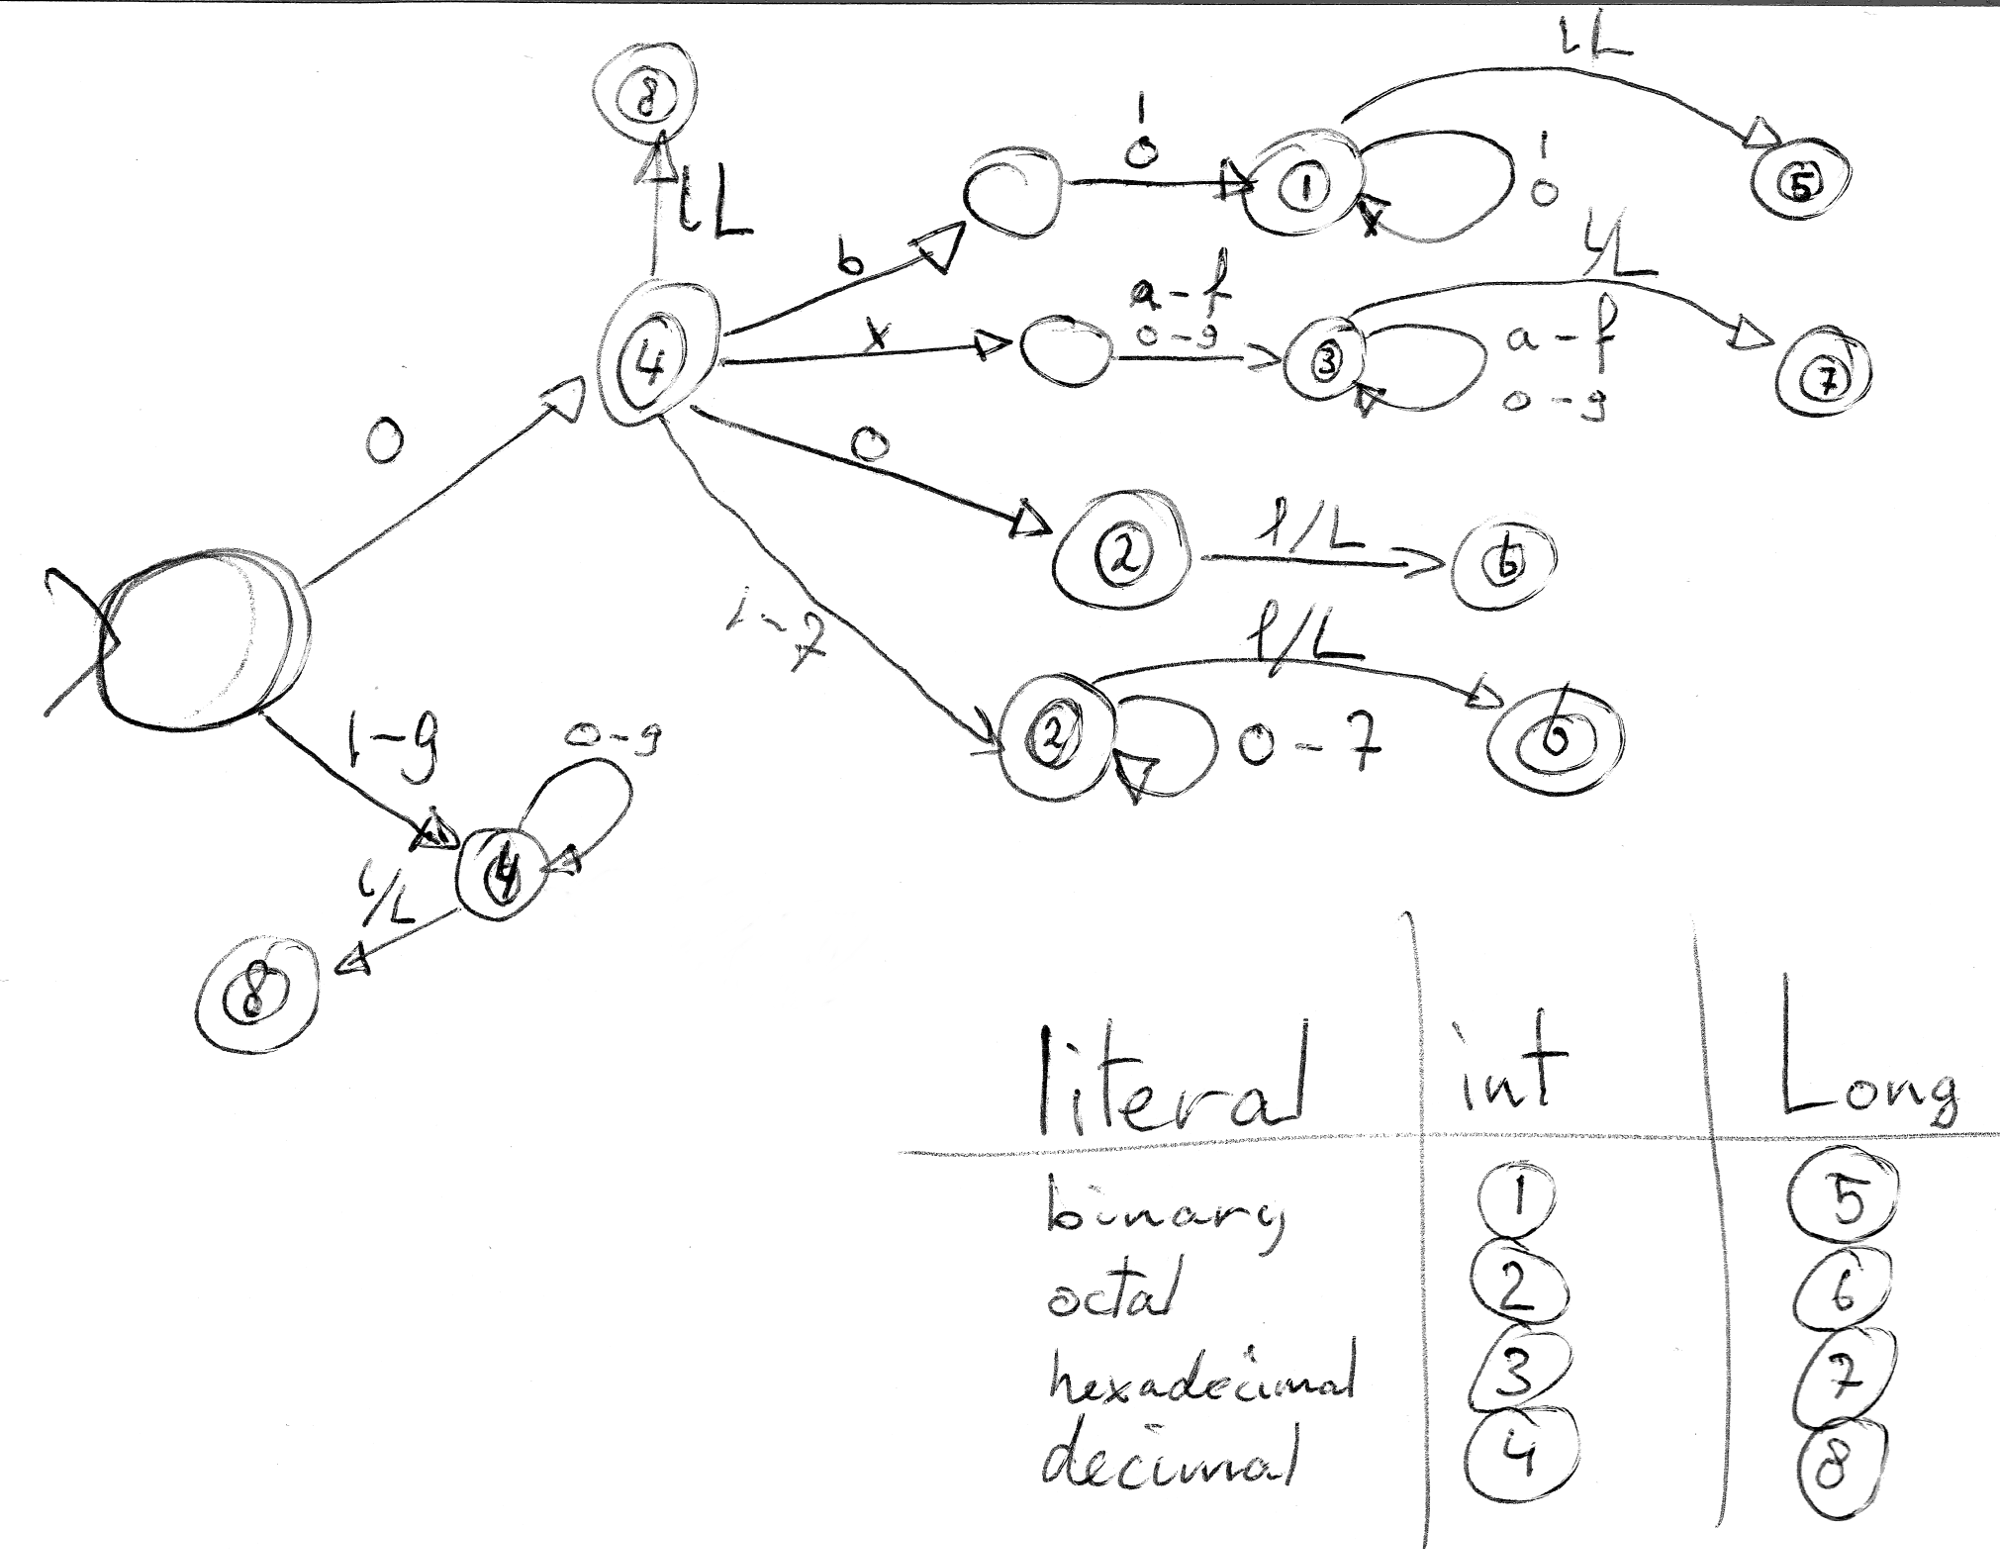 lL
8
1
0
1
5
1
0
lL
b
l/L
a-f
0-9
x
4
3
a-f
0-9
7
0
0
2
l/L
6
1-7
l/L
2
0-7
6
1-9
0-9
4
l/L
8
literal int Long
binary 1 5
octal 2 6
hexadecimal 3 7
decimal 4 8